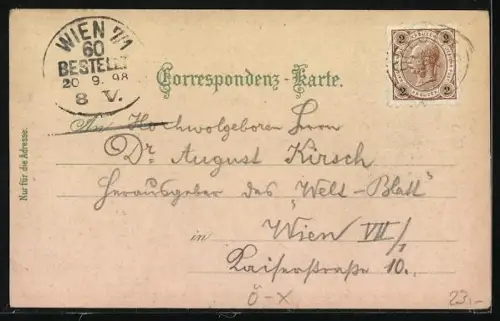 WIEN 7/1
60
BESTELLT
20 9. 98
8 V.
Correspondenz-Karte.
2 2
2 2
Nur für die Adresse.
An Hochwolgeboren Herrn
Dr August Kirsch
Herausgeber des "Welt-Blatt"
in Wien VII/1
Kaiserstraße 10.
Ö-X
23,-